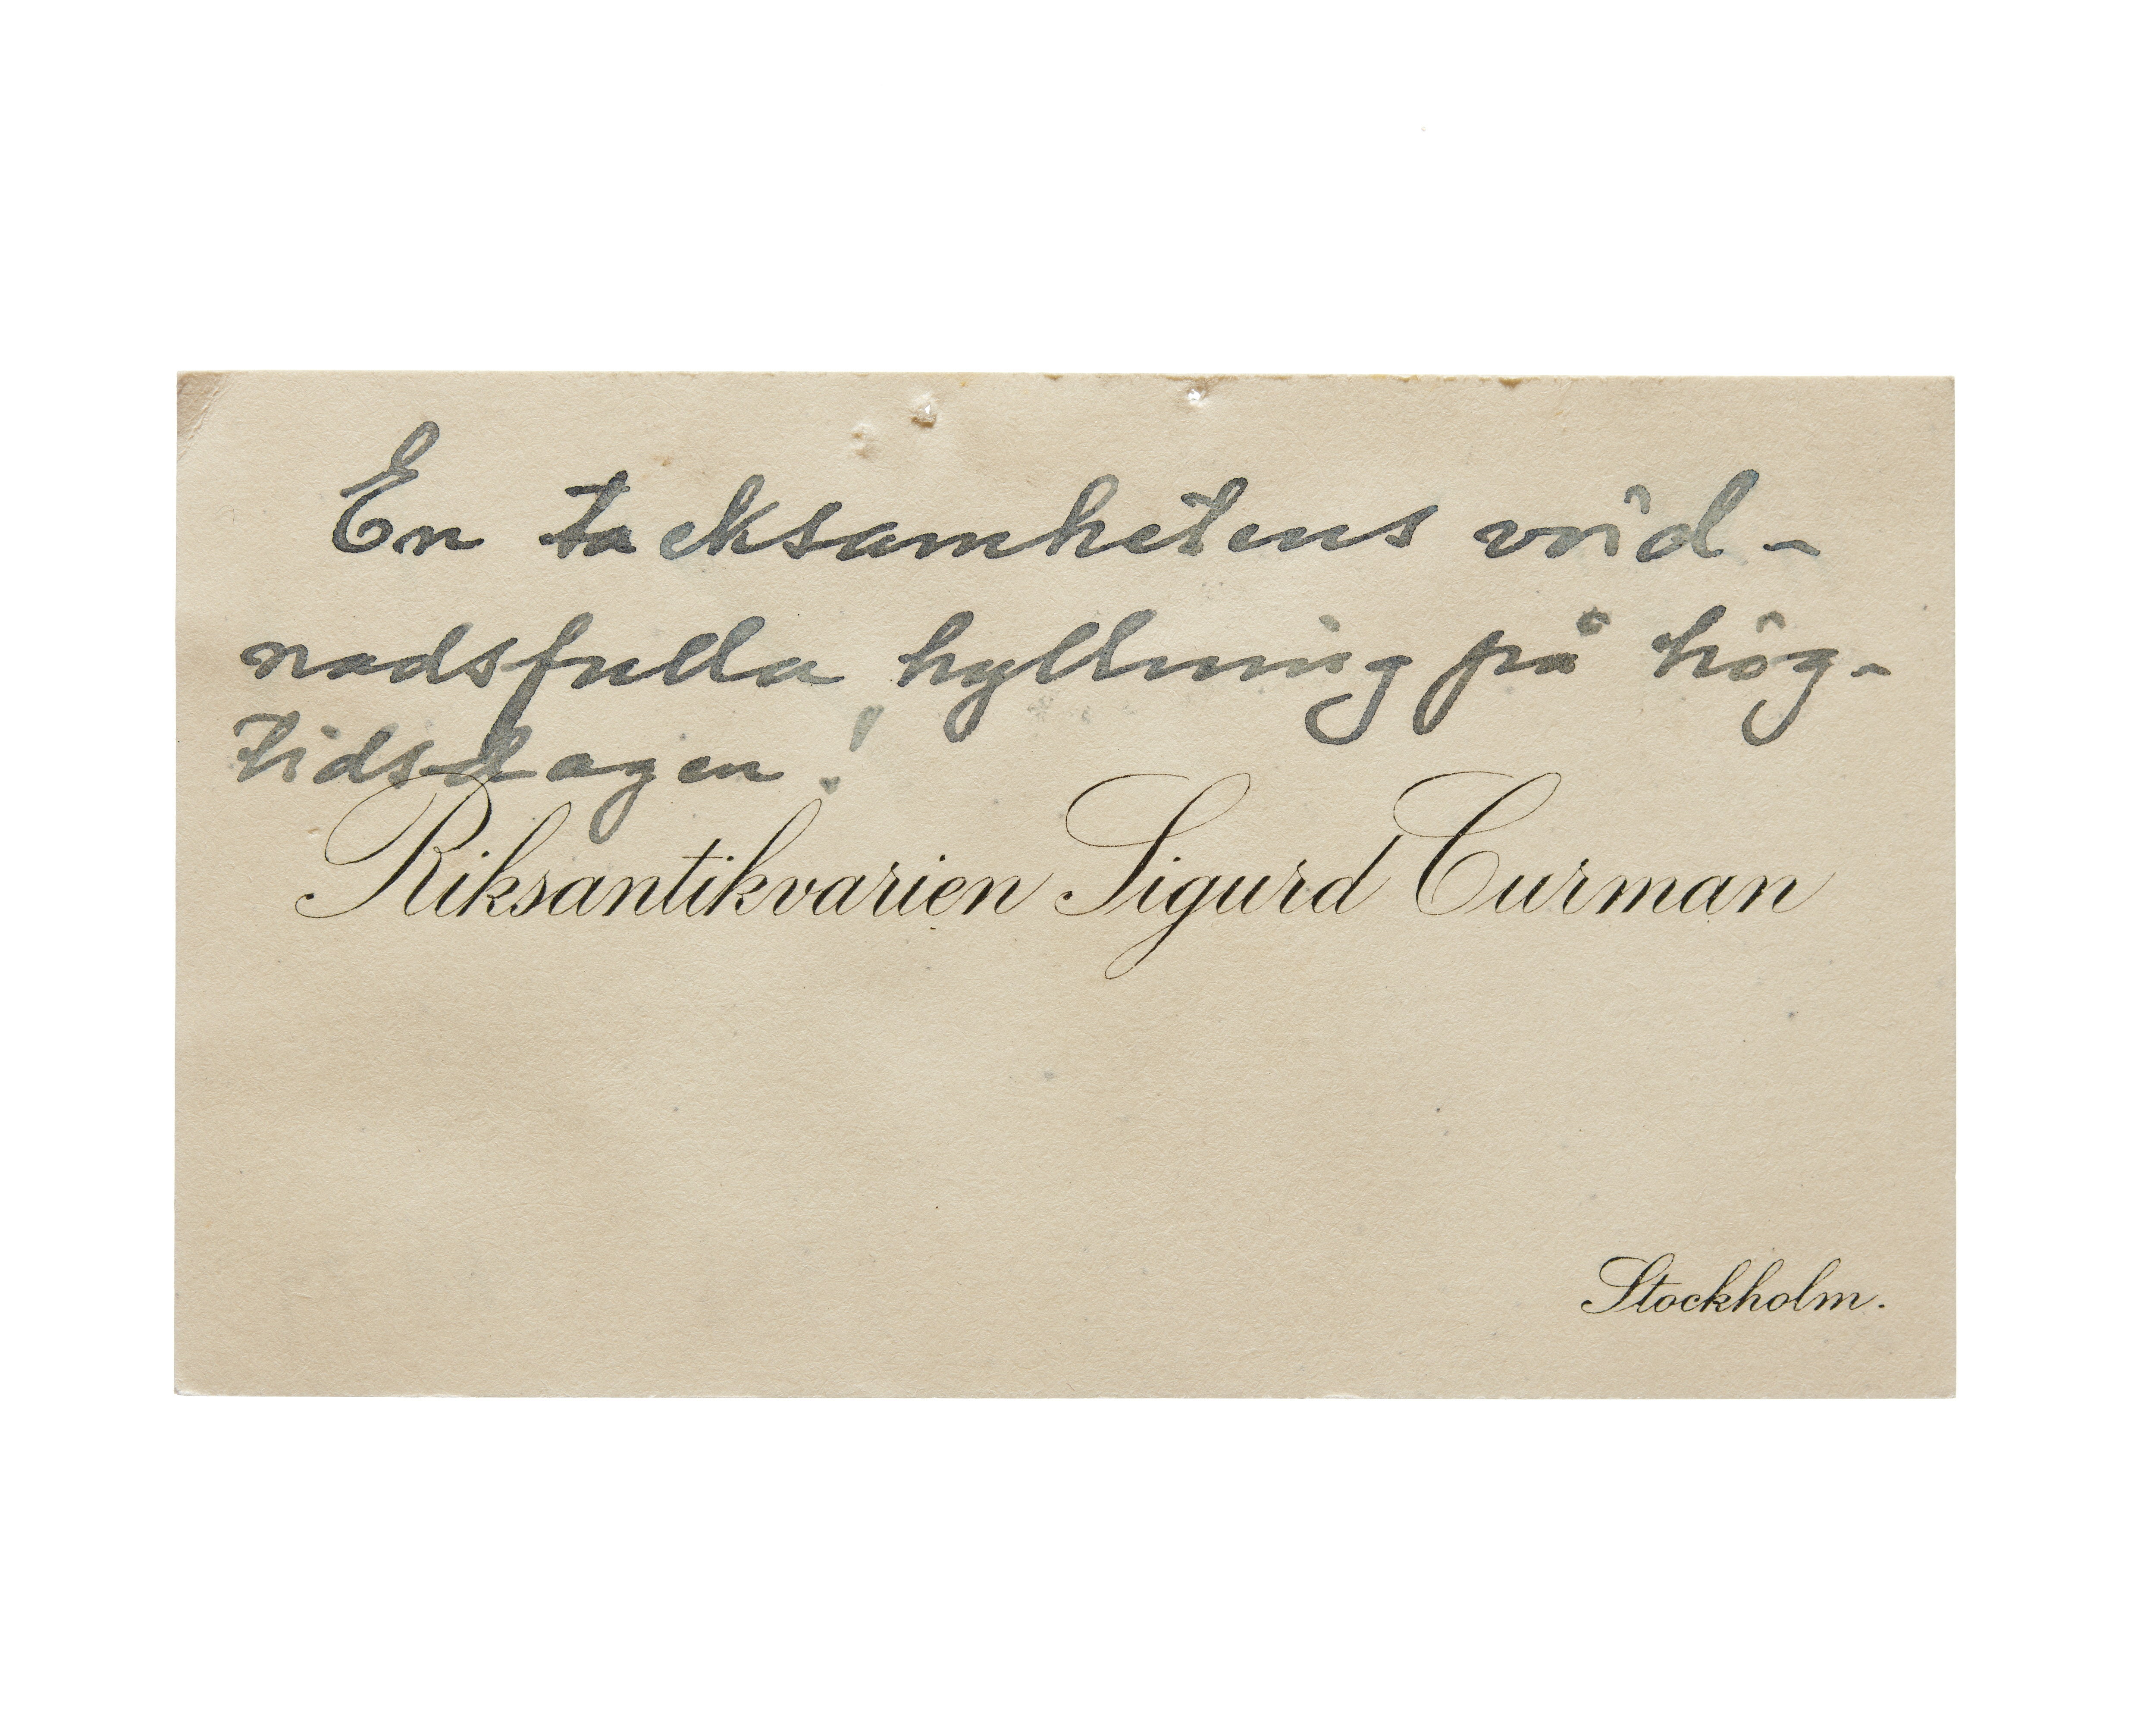 En tacksamhetens vörd-
nadsfulla hyllning på hög-
tidsdagen!
Riksantikvarien Sigurd Curman
Stockholm.